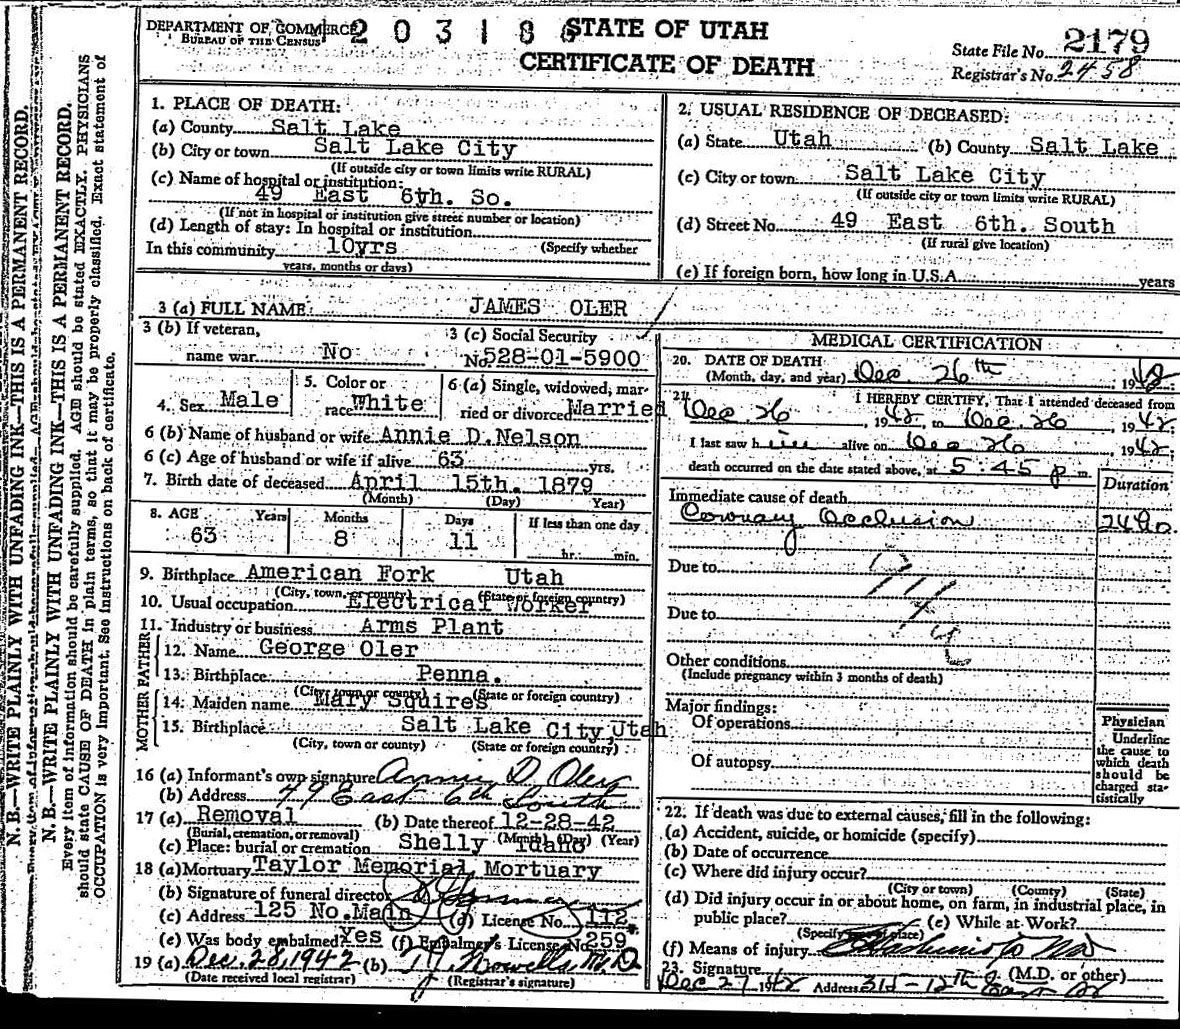 DEPARTMENT OF COMMERCE
BUREAU OF THE CENSUS
2 0 3 1 8
STATE OF UTAH
CERTIFICATE OF DEATH
State File No. 2179
Registrar's No. 2458
N. B.—WRITE PLAINLY WITH UNFADING INK—THIS IS A PERMANENT RECORD.
N. B.—WRITE PLAINLY WITH UNFADING INK—THIS IS A PERMANENT RECORD.
Every item of information should be carefully supplied. AGE should be stated EXACTLY. PHYSICIANS
should state CAUSE OF DEATH in plain terms, so that it may be properly classified. Exact statement of
OCCUPATION is very important. See instructions on back of certificate.
1. PLACE OF DEATH:
(a) County Salt Lake
(b) City or town Salt Lake City
(If outside city or town limits write RURAL)
(c) Name of hospital or institution:
49 East 6th. So.
(If not in hospital or institution give street number or location)
(d) Length of stay: In hospital or institution
In this community 10yrs (Specify whether
years, months or days)
2. USUAL RESIDENCE OF DECEASED:
(a) State Utah (b) County Salt Lake
(c) City or town Salt Lake City
(If outside city or town limits write RURAL)
(d) Street No. 49 East 6th. South
(If rural give location)
(e) If foreign born, how long in U.S.A. years
3 (a) FULL NAME: JAMES OLER
3 (b) If veteran,
name war. No
3 (c) Social Security
No. 528-01-5900
4. Sex Male
5. Color or
race White
6 (a) Single, widowed, mar-
ried or divorced Married
6 (b) Name of husband or wife Annie D. Nelson
6 (c) Age of husband or wife if alive 63 yrs.
7. Birth date of deceased April 15th. 1879
(Month) (Day) Year)
8. AGE Years Months Days If less than one day
63 8 11
hr. min.
9. Birthplace American Fork Utah
(City, town, or county) (State or foreign country)
10. Usual occupation Electrical Worker
11. Industry or business Arms Plant
FATHER
12. Name George Oler
13. Birthplace Penna.
(City, town or county) (State or foreign country)
MOTHER
14. Maiden name Mary Squires
15. Birthplace Salt Lake City, Utah
(City, town or county) (State or foreign country)
16 (a) Informant's own signature Annie D. Oler
(b) Address 49 East 6th South
17 (a) Removal (b) Date thereof 12-28-42
(Burial, cremation, or removal) (Month) (Day) (Year)
(c) Place: burial or cremation Shelly Idaho
18 (a) Mortuary Taylor Memorial Mortuary
(b) Signature of funeral director
(c) Address 125 No. Main (d) License No. 112
(e) Was body embalmed? Yes (f) Embalmer's License No. 259
19 (a) Dec. 28, 1942 (b) M.D.
(Date received local registrar) (Registrar's signature)
MEDICAL CERTIFICATION
20. DATE OF DEATH
(Month, day, and year) Dec. 26th, 1942
21. I HEREBY CERTIFY, That I attended deceased from
Dec 26, 1942, to Dec. 26, 1942.
I last saw him alive on Dec 26 1942,
death occurred on the date stated above, at 5:45 p m.
Duration
Immediate cause of death
Coronary Occlusion
Due to
Due to
Other conditions
(Include pregnancy within 3 months of death)
Major findings:
Of operations
Of autopsy
Physician
Underline
the cause to
which death
should be
charged sta-
tistically
22. If death was due to external causes, fill in the following:
(a) Accident, suicide, or homicide (specify)
(b) Date of occurrence
(c) Where did injury occur?
(City or town) (County) (State)
(d) Did injury occur in or about home, on farm, in industrial place, in
public place? (e) While at Work?
(Specify type of place)
(f) Means of injury
23. Signature (M.D. or other)
Dec 27 1942 Address